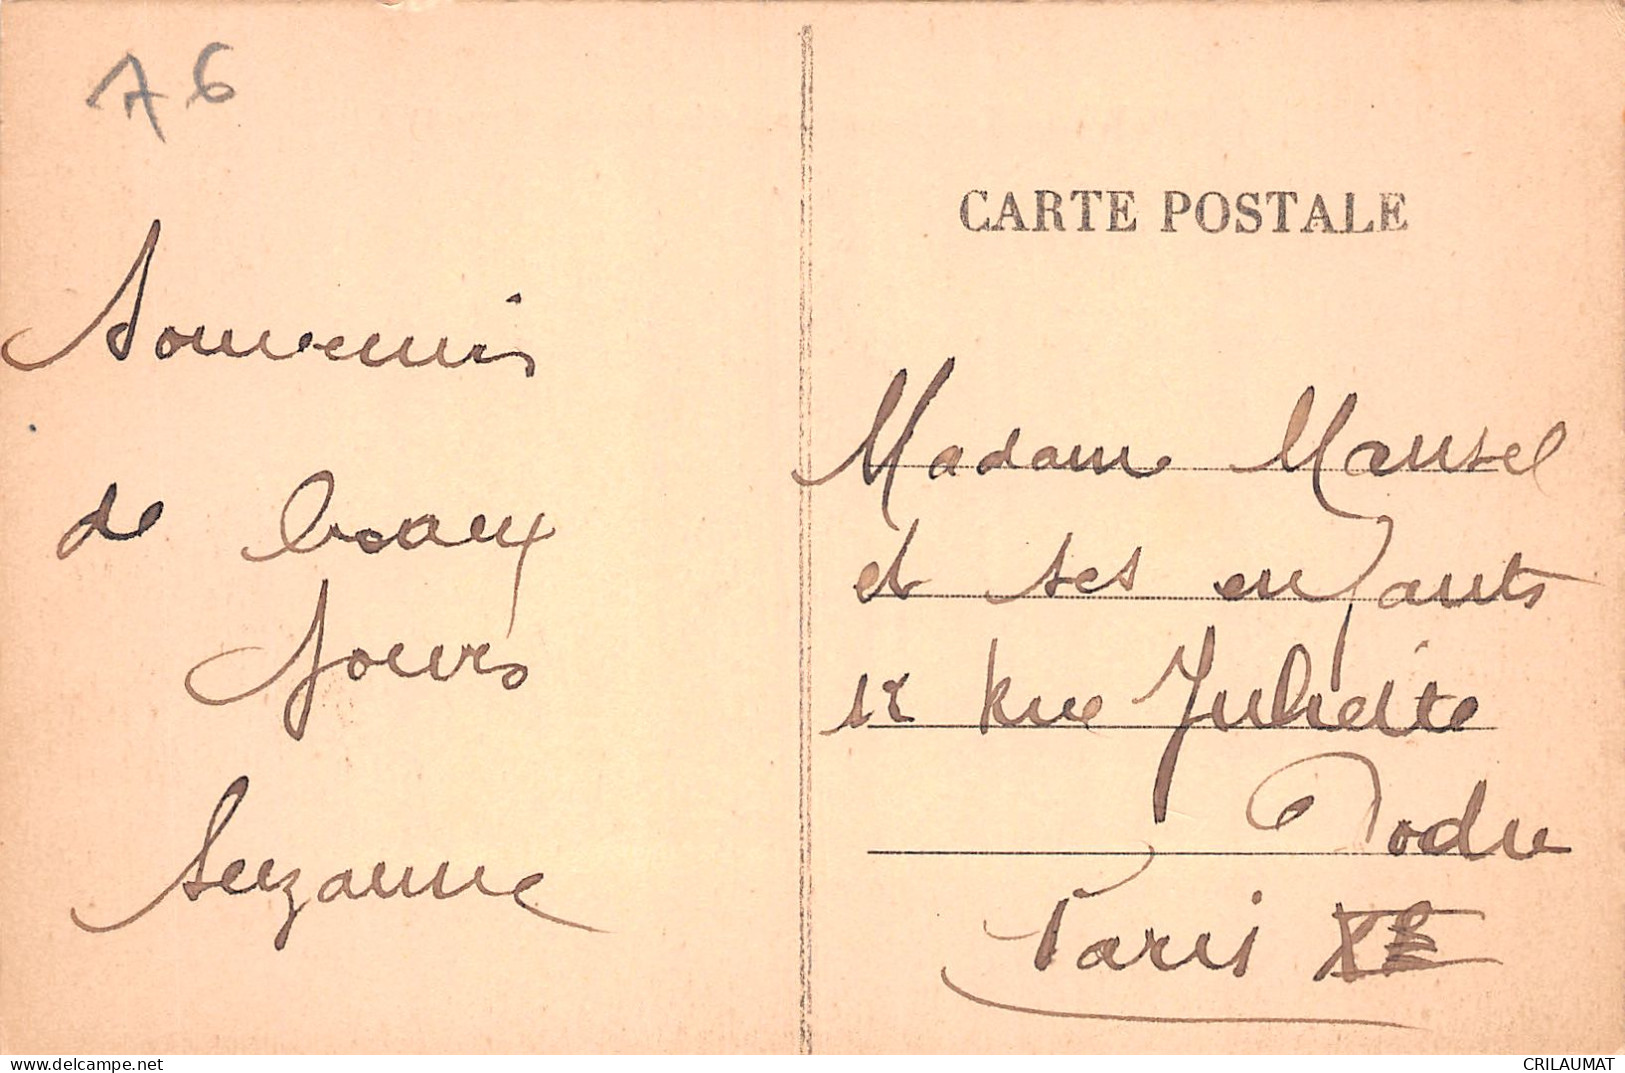 A6
CARTE POSTALE
Souvenirs
de beaux
Jours
Suzanne
Madame Mansel
et ses enfants
12 Rue Juliette
Dodu
Paris Xe
www.delcampe.net
CRILAUMAT